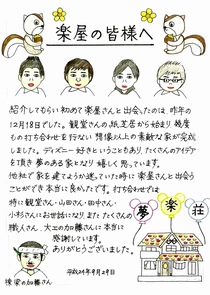 楽屋の皆様へ
紹介してもらい初めて楽屋さんと出会ったのは昨年の
12月18日でした。観堂さんの紙芝居から始まり幾度
もの打ち合わせを行ない想像以上の素敵な家が完成
しました。ディズニー好きということもあり、たくさんのアイデア
を頂き夢のある家となり嬉しく思っています。
他社で家を建てようか迷っていた時に楽屋さんと出会う
ことができ本当に良かったです。打ち合わせでは
特に観堂さん・山田さん・田中さん・
小杉さんにお世話になり、またたくさんの
職人さん、大工の加藤さんには本当に
感謝しています。
ありがとうございました。
平成24年9月29日
夢楽荘
棟梁の加藤さん